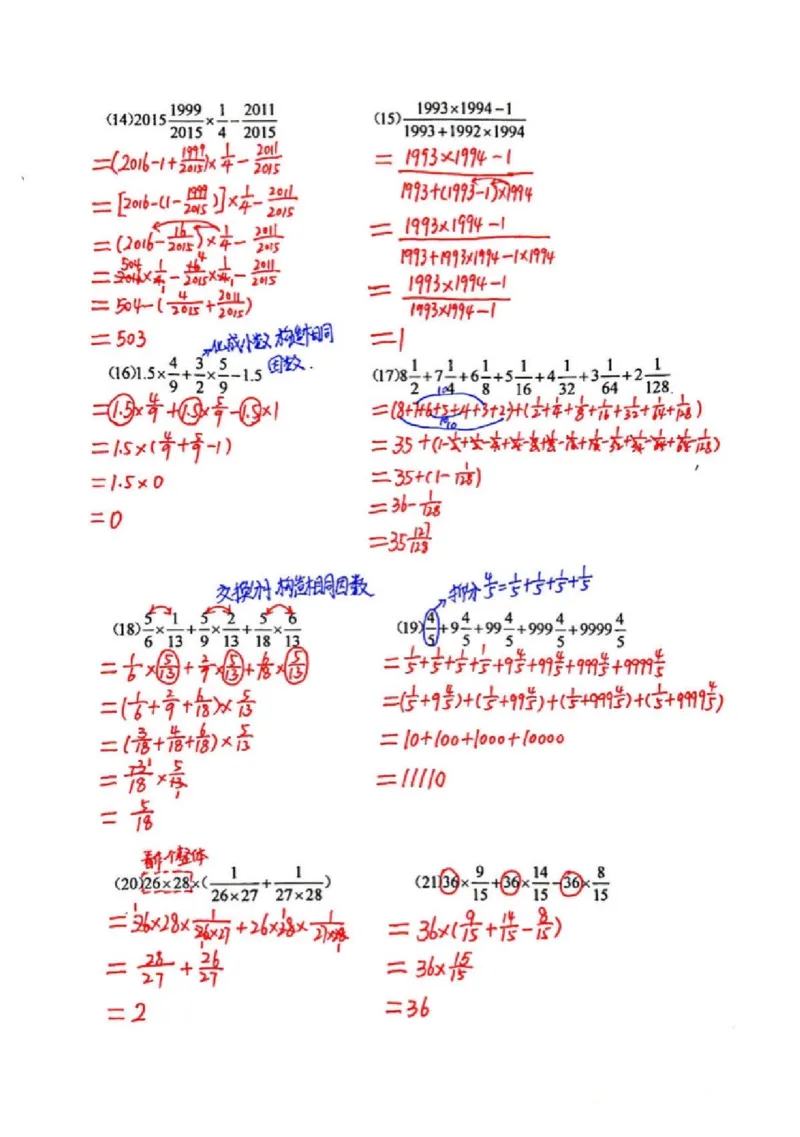 (14)2015 1999/2015 × 1/4 − 2011/2015
=(2016-1+1999/2015)×1/4-2011/2015
=[2016-(1-1999/2015)]×1/4-2011/2015
=(2016-16/2015)×1/4-2011/2015
=2016×1/4-16/2015×1/4-2011/2015
504 1 4 1
=504-(4/2015+2011/2015)
=503
(15) (1993×1994−1)/(1993+1992×1994)
=(1993×1994-1)/(1993+(1993-1)×1994)
=(1993×1994-1)/(1993+1993×1994-1×1994)
=(1993×1994-1)/(1993×1994-1)
=1
化成小数,构造相同因数.
(16)1.5×4/9+3/2×5/9−1.5
=1.5×4/9+1.5×5/9-1.5×1
=1.5×(4/9+5/9-1)
=1.5×0
=0
(17)8 1/2+7 1/4+6 1/8+5 1/16+4 1/32+3 1/64+2 1/128
10
=(8+7+6+5+4+3+2)+(1/2+1/4+1/8+1/16+1/32+1/64+1/128)
10
=35+(1-1/2+1/2-1/4+1/4-1/8+1/8-1/16+1/16-1/32+1/32-1/64+1/64-1/128)
=35+(1-1/128)
=36-1/128
=35 127/128
交换分子,构造相同因数
(18)5/6×1/13+5/9×2/13+5/18×6/13
=1/6×5/13+2/9×5/13+6/18×5/13
=(1/6+2/9+6/18)×5/13
=(3/18+4/18+6/18)×5/13
=13/18×5/13
1 1
=5/18
拆分4/5=1/5+1/5+1/5+1/5
(19)4/5+9 4/5+99 4/5+999 4/5+9999 4/5
=1/5+1/5+1/5+1/5+9 4/5+99 4/5+999 4/5+9999 4/5
=(1/5+9 4/5)+(1/5+99 4/5)+(1/5+999 4/5)+(1/5+9999 4/5)
=10+100+1000+10000
=11110
看作个整体
(20)26×28×(1/(26×27)+1/(27×28))
=26×28×1/(26×27)+26×28×1/(27×28)
1 1 1 1
=28/27+26/27
=2
(21)36×9/15+36×14/15−36×8/15
=36×(9/15+14/15-8/15)
=36×15/15
=36